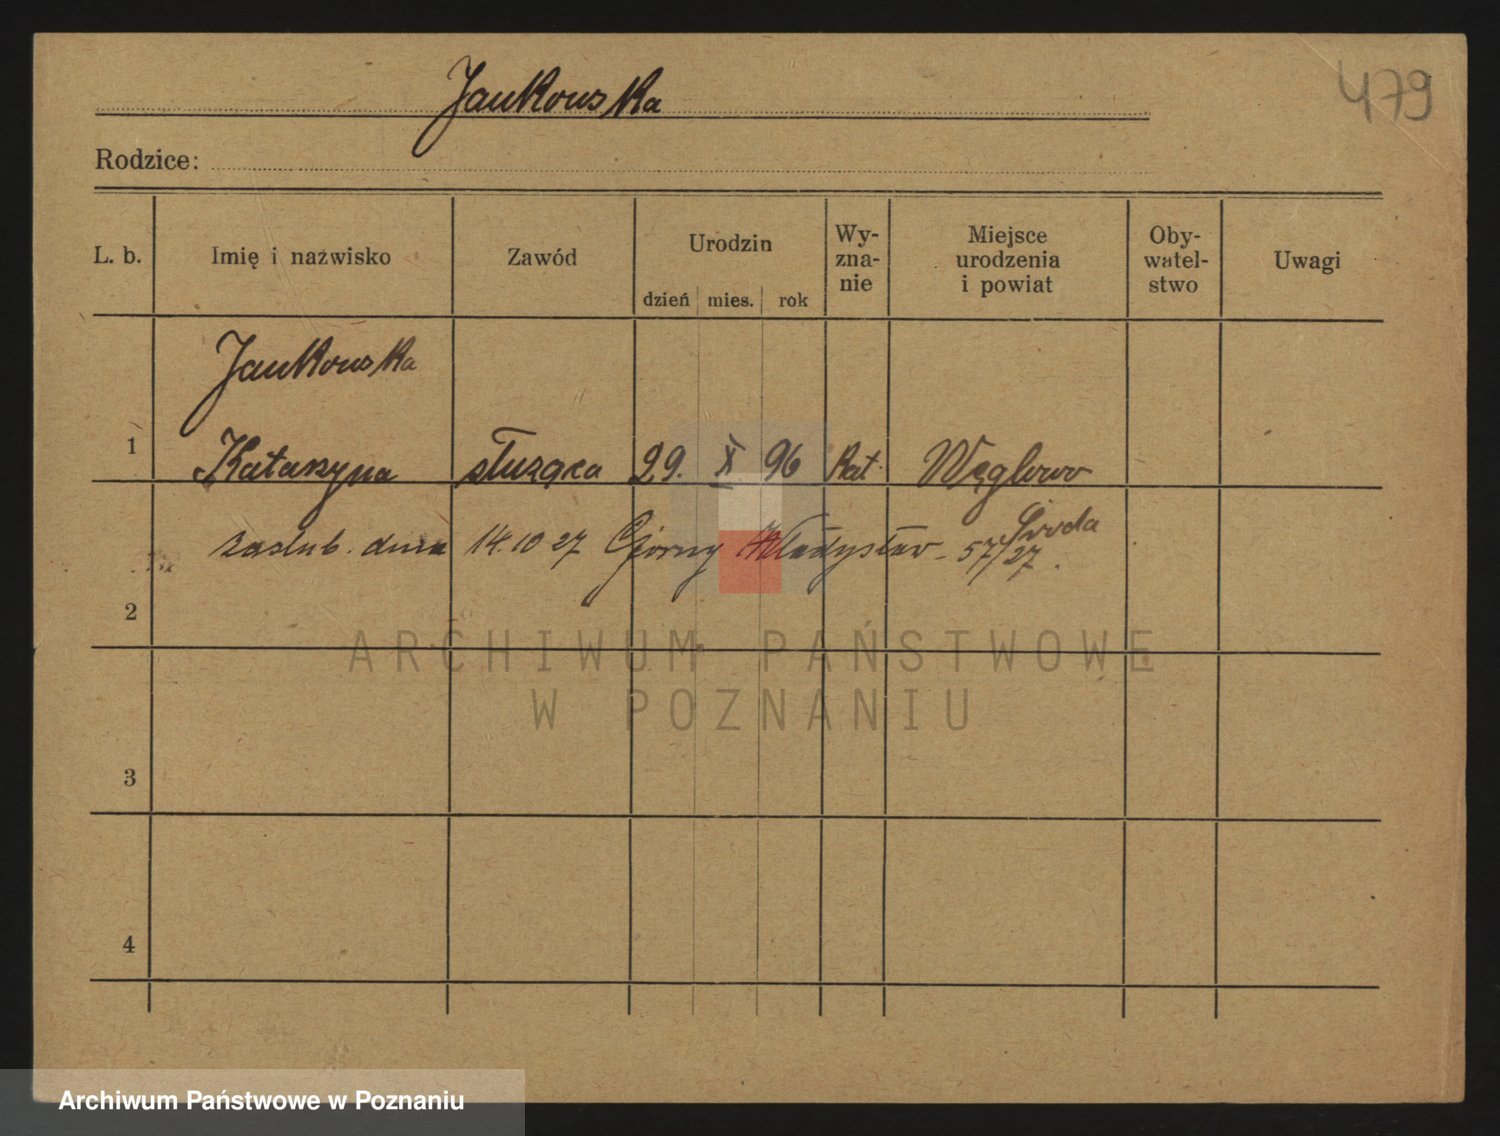 Jankowska
479
Rodzice:
L. b. Imię i nazwisko Zawód Urodzin dzień mies. rok Wy-zna-nie Miejsce urodzenia i powiat Oby-watel-stwo Uwagi
Jankowska
1 Katarzyna służąca 29. X 96 kat. Węglowo
Środa
zaślub. dnia 14.10 27 Górny Władysław - 57/27.
2
ARCHIWUM PAŃSTWOWE
W POZNANIU
3
4
Archiwum Państwowe w Poznaniu